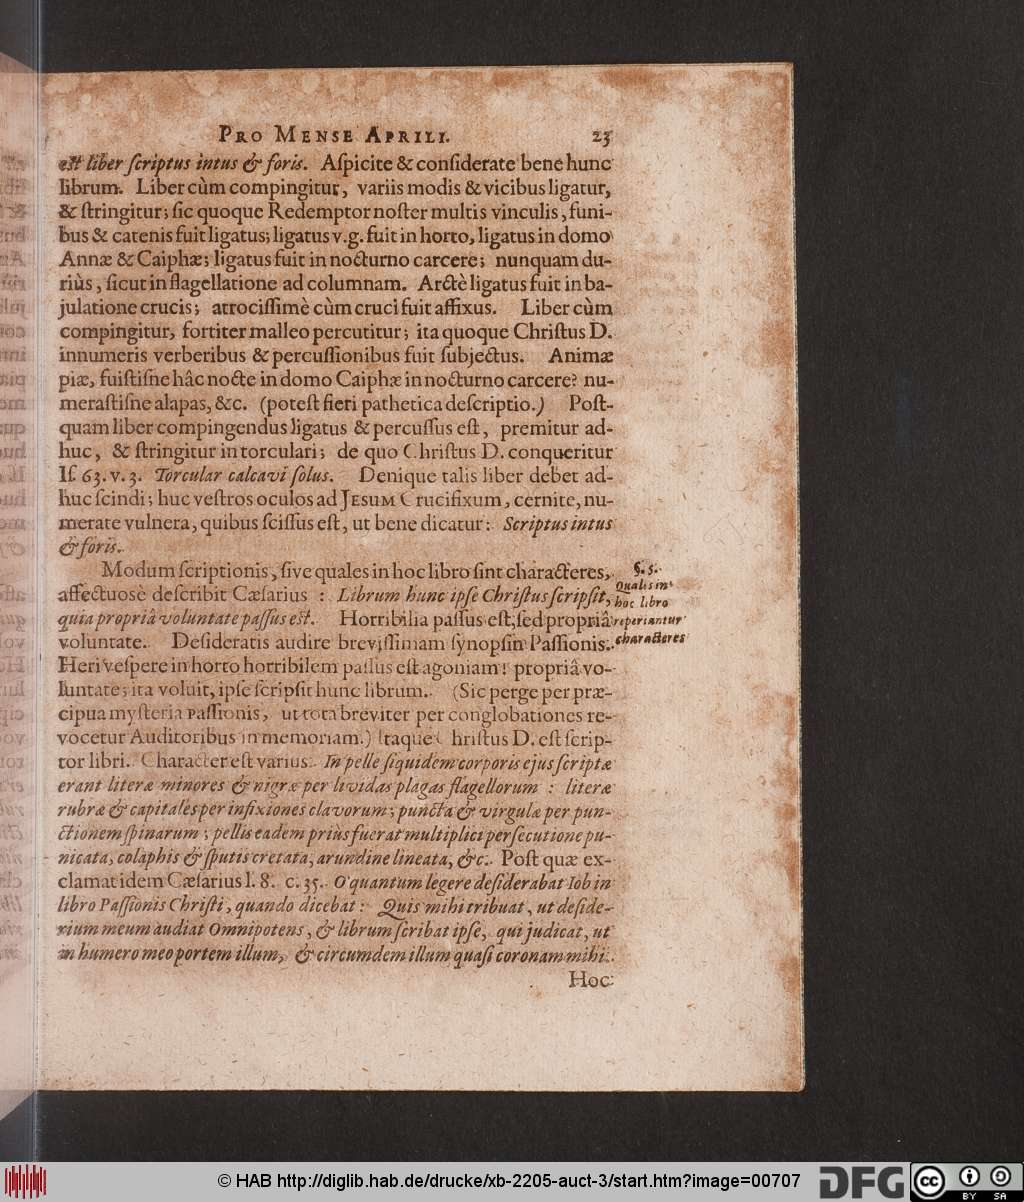 PRO MENSE APRILI. 23
est liber ſcriptus intus & foris. Aſpicite & conſiderate bene hunc
librum. Liber cùm compingitur, variis modis & vicibus ligatur,
& ſtringitur; ſic quoque Redemptor noſter multis vinculis, funi-
bus & catenis fuit ligatus; ligatus v.g. fuit in horto, ligatus in domo
Annæ & Caiphæ; ligatus fuit in nocturno carcere; nunquam du-
riùs, ſicut in flagellatione ad columnam. Arctè ligatus fuit in ba-
julatione crucis; atrociſſimè cùm cruci fuit affixus. Liber cùm
compingitur, fortiter malleo percutitur; ita quoque Chriſtus D.
innumeris verberibus & percuſſionibus fuit ſubjectus. Animæ
piæ, fuiſtiſne hâc nocte in domo Caiphæ in nocturno carcere? nu-
meraſtiſne alapas, &c. (poteſt fieri pathetica deſcriptio.) Poſt-
quam liber compingendus ligatus & percuſſus eſt, premitur ad-
huc, & ſtringitur in torculari; de quo Chriſtus D. conqueritur
Iſ. 63. v. 3. Torcular calcavi ſolus. Denique talis liber debet ad-
huc ſcindi; huc veſtros oculos ad JESUM Crucifixum, cernite, nu-
merate vulnera, quibus ſciſſus eſt, ut bene dicatur: Scriptus intus
& foris.
Modum ſcriptionis, ſive quales in hoc libro ſint characteres,
affectuosè deſcribit Cæſarius : Librum hunc ipſe Chriſtus ſcripſit,
quia propriâ voluntate paſſus eſt. Horribilia paſſus eſt, ſed propriâ
voluntate. Deſideratis audire breviſſimam ſynopſin Paſſionis.
Heri veſpere in horto horribilem paſſus eſt agoniam! propriâ vo-
luntate; ita voluit, ipſe ſcripſit hunc librum. (Sic perge per præ-
cipua myſteria Paſſionis, ut tota breviter per conglobationes re-
vocetur Auditoribus in memoriam.) Itaque Chriſtus D. eſt ſcrip-
tor libri. Character eſt varius. In pelle ſiquidem corporis ejus ſcriptæ
erant literæ minores & nigræ per lividas plagas flagellorum : literæ
rubræ & capitales per infixiones clavorum; puncta & virgulæ per pun-
ctionem ſpinarum; pellis eadem priùs fuerat multiplici perſecutione pu-
nicata, colaphis & ſputis cretata, arundine lineata, &c. Poſt quæ ex-
clamat idem Cæſarius l. 8. c. 35. O quantum legere deſiderabat Iob in
libro Paſſionis Chriſti, quando dicebat: Quis mihi tribuat, ut deſide-
rium meum audiat Omnipotens, & librum ſcribat ipſe, qui judicat, ut
in humero meo portem illum, & circumdem illum quaſi coronam mihi.
Hoc
§. 5.
Qualis in
hoc libro
reperiantur
characteres
© HAB http://diglib.hab.de/drucke/xb-2205-auct-3/start.htm?image=00707
DFG
cc
BY SA